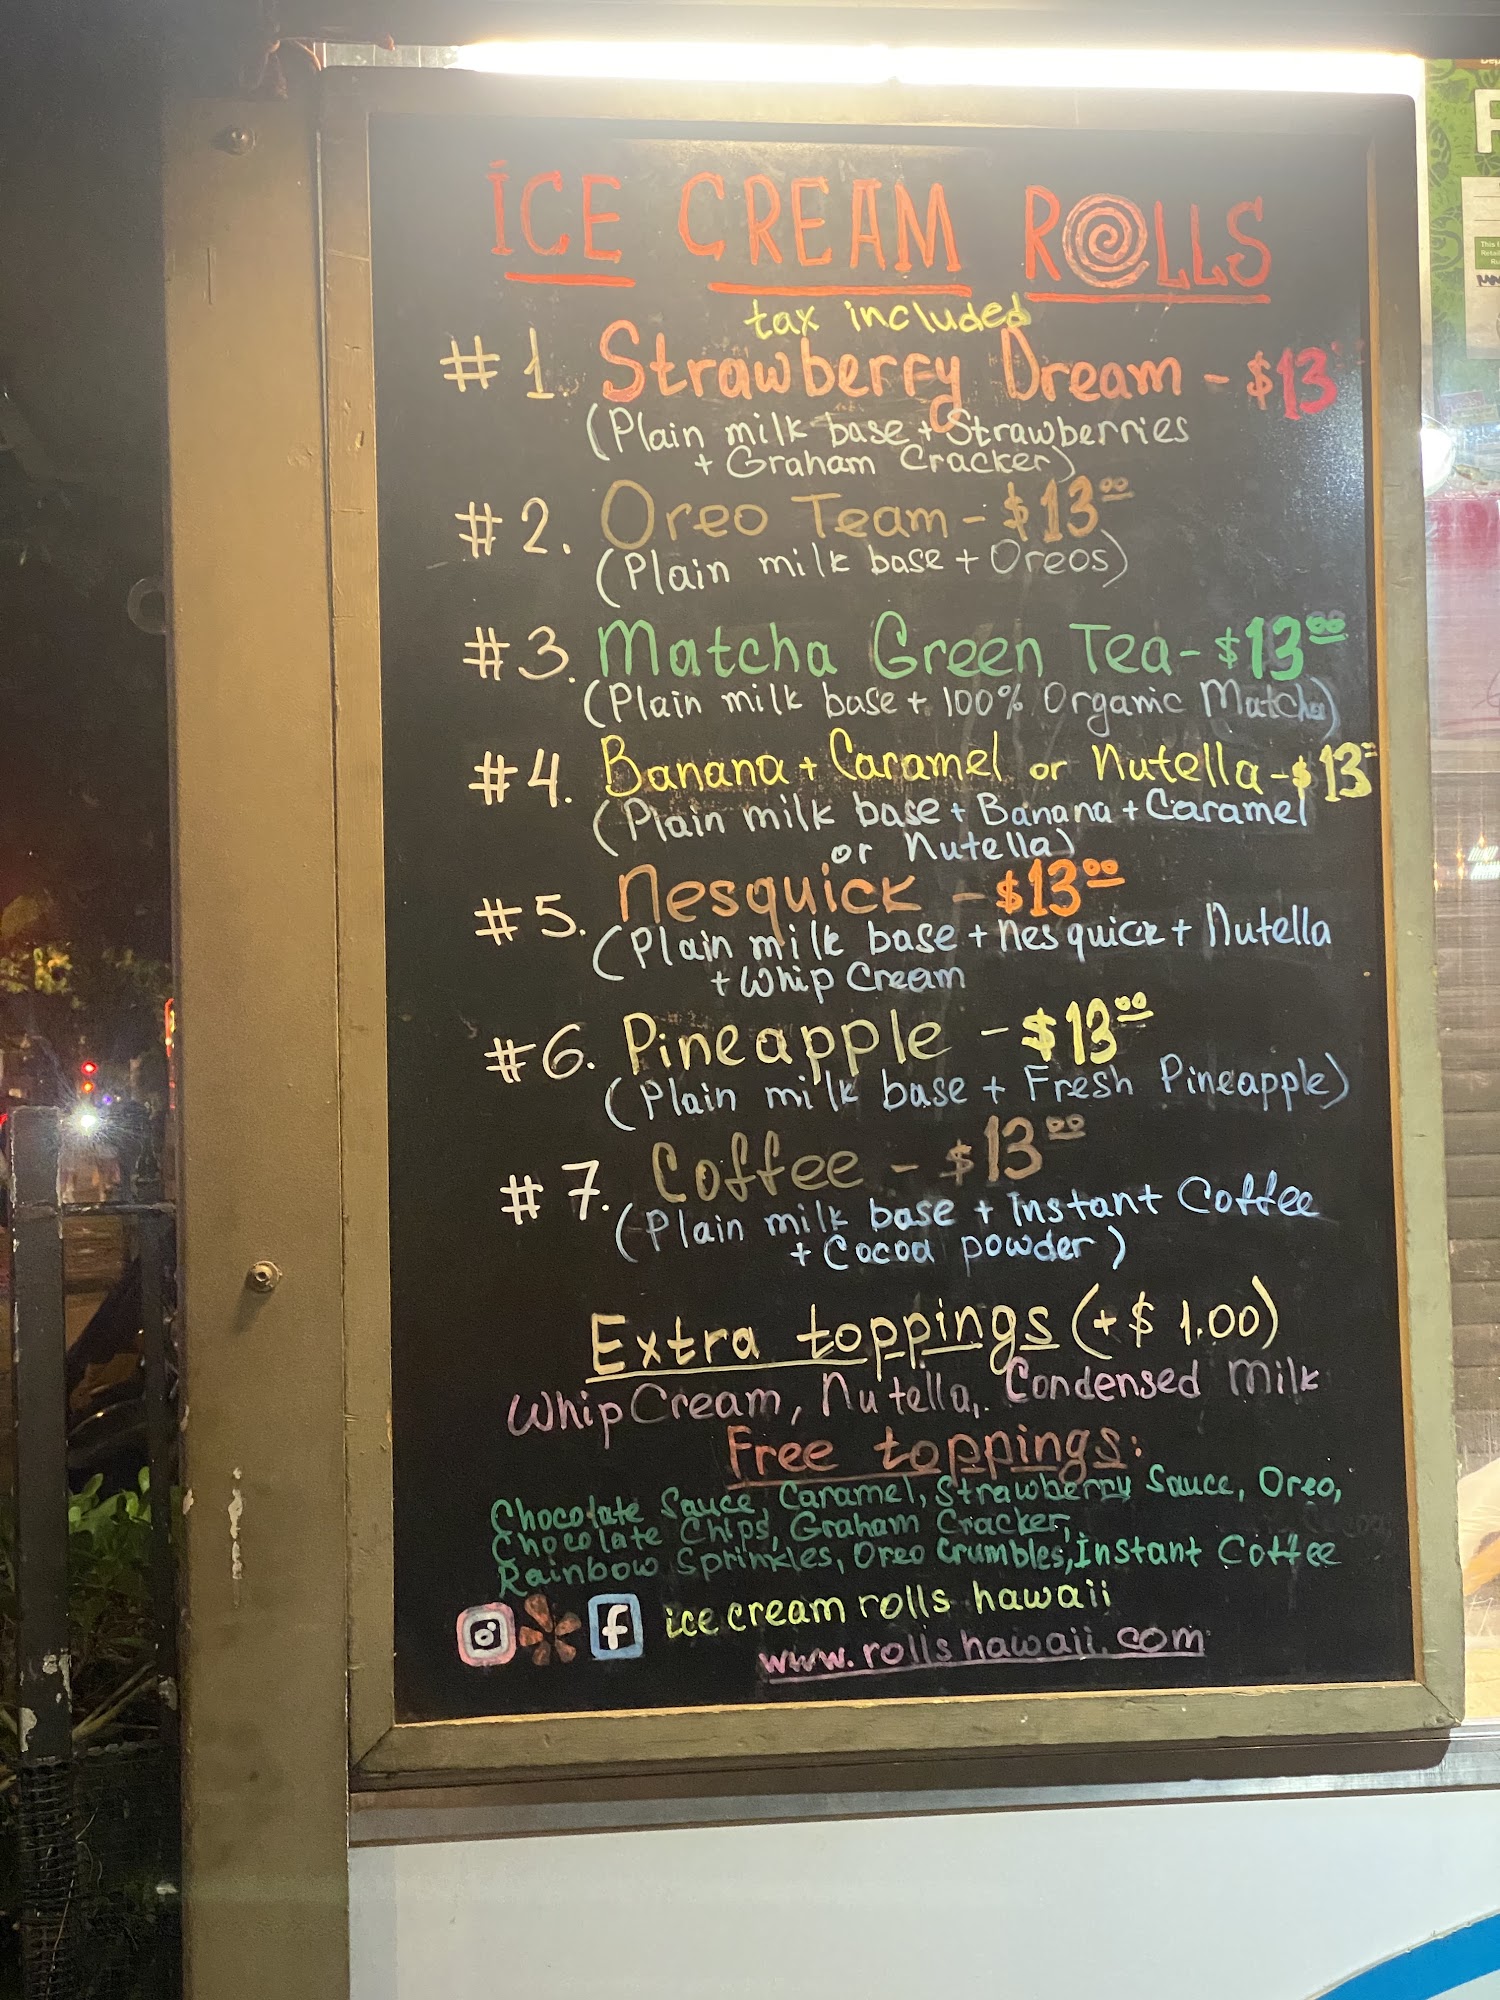 ICE CREAM ROLLS
tax included
#1. Strawberry Dream - $13
(Plain milk base + Strawberries
+ Graham Cracker)
#2. Oreo Team - $13.00
(Plain milk base + Oreos)
#3. Matcha Green Tea - $13.00
(Plain milk base + 100% Organic Matcha)
#4. Banana + Caramel or Nutella - $13
(Plain milk base + Banana + Caramel
or Nutella)
#5. Nesquick - $13.00
(Plain milk base + Nesquick + Nutella
+ Whip Cream
#6. Pineapple - $13.00
(Plain milk base + Fresh Pineapple)
#7. Coffee - $13.00
(Plain milk base + Instant Coffee
+ Cocoa powder)
Extra toppings (+ $1.00)
Whip Cream, Nutella, Condensed Milk
Free toppings:
Chocolate Sauce, Caramel, Strawberry Sauce, Oreo,
Chocolate Chips, Graham Cracker,
Rainbow Sprinkles, Oreo Crumbles, Instant Coffee
f icecreamrollshawaii
www.rollshawaii.com